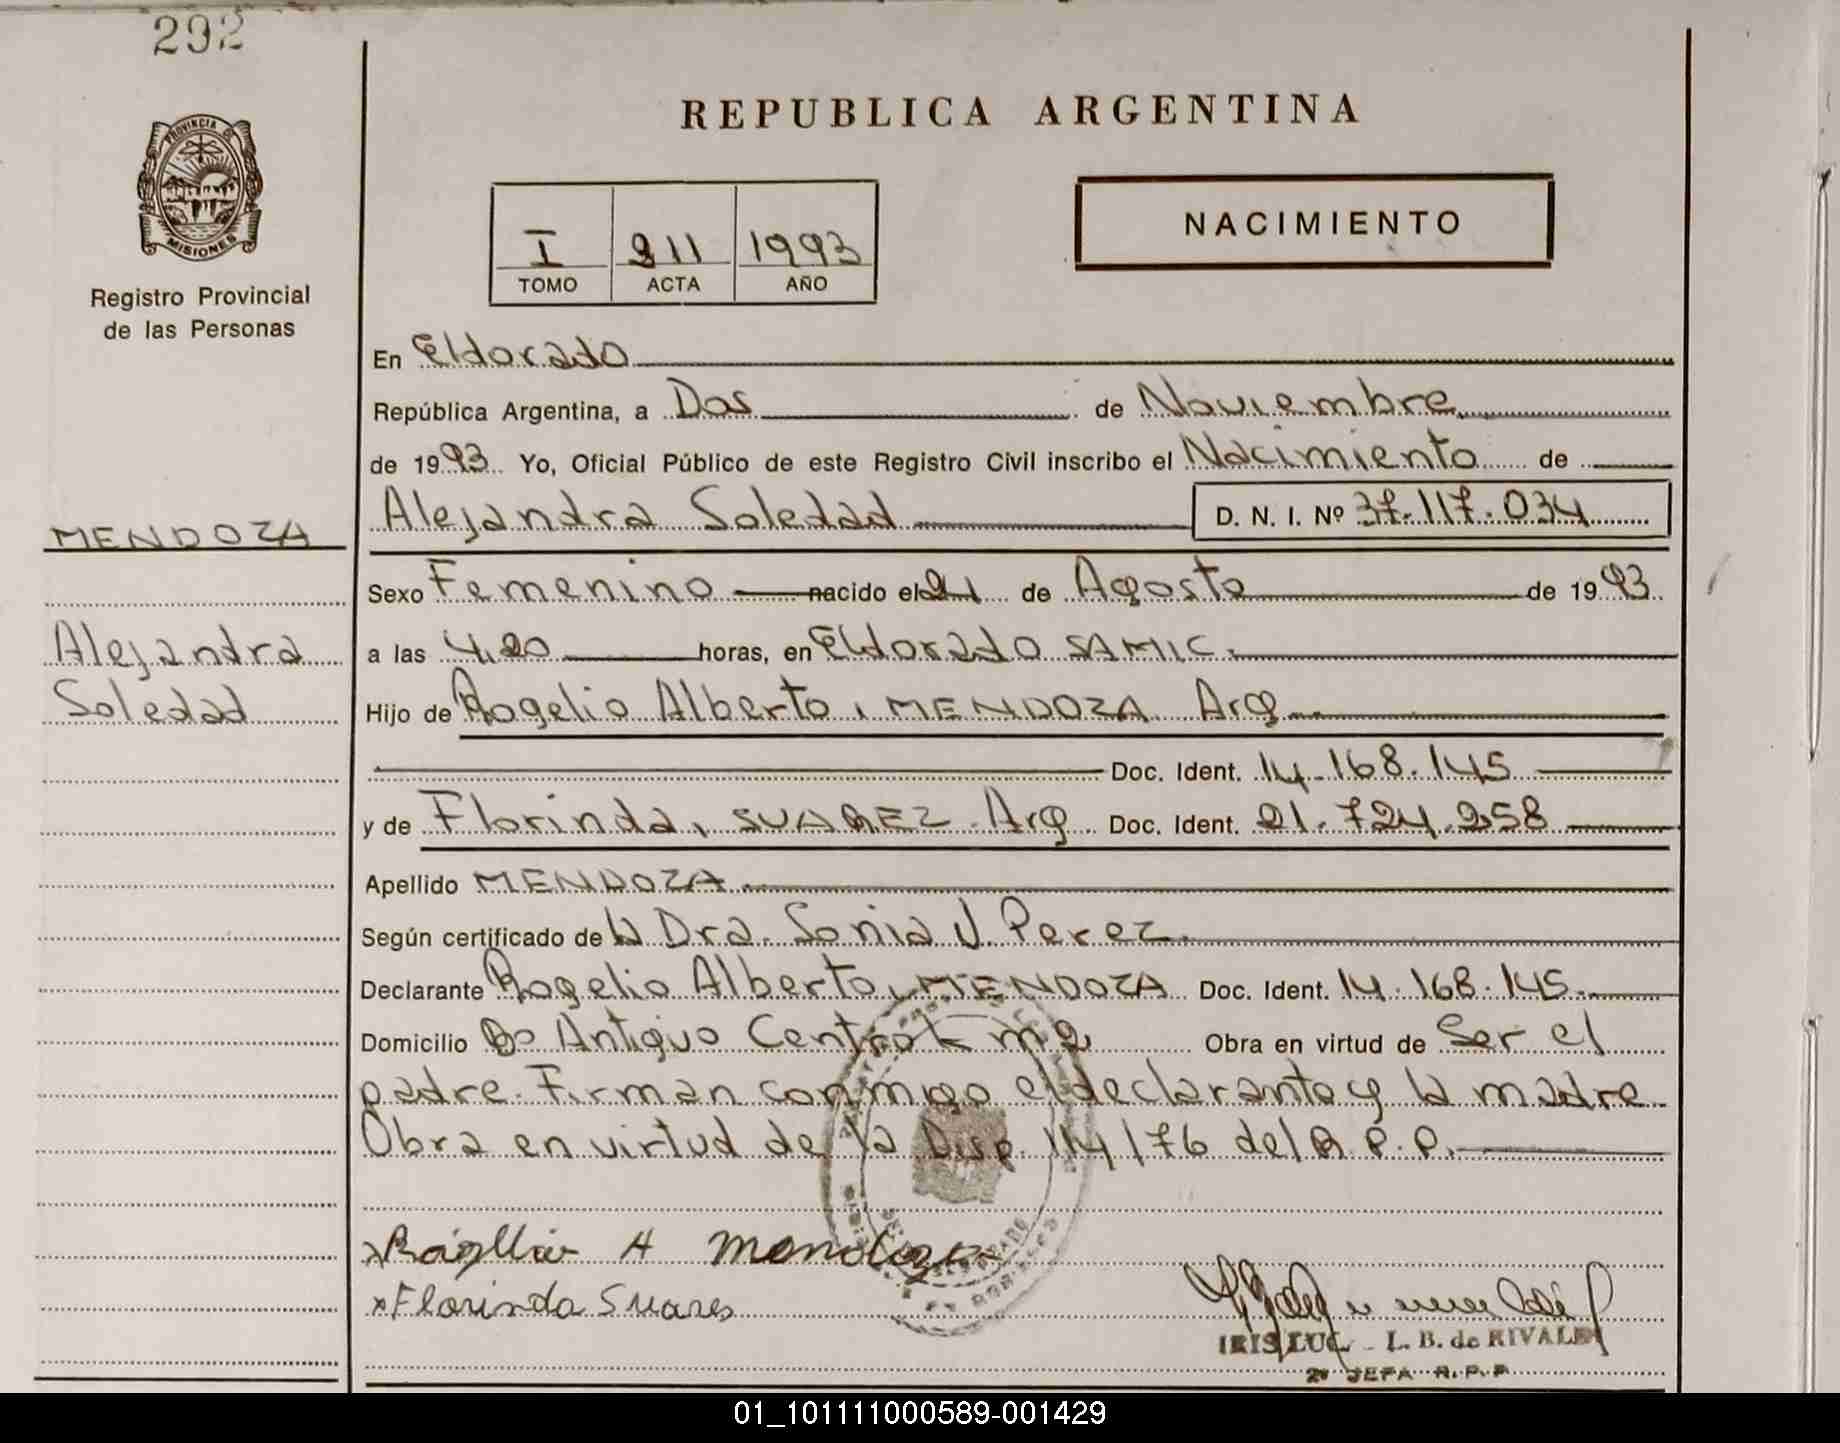 292
PROVINCIA DE
MISIONES
Registro Provincial
de las Personas
MENDOZA
Alejandra
Soledad
REPUBLICA ARGENTINA
I 211 1993
TOMO ACTA AÑO
NACIMIENTO
En Eldorado
República Argentina, a Dos de Noviembre
de 1993 Yo, Oficial Público de este Registro Civil inscribo el Nacimiento de
Alejandra Soledad D. N. I. Nº 37.117.034
Sexo Femenino nacido el 21 de Agosto de 1993
a las 4,20 horas, en Eldorado SAMIC.
Hijo de Rogelio Alberto, MENDOZA Arg
Doc. Ident. 14.168.145
y de Florinda, SUAREZ. Arg Doc. Ident. 21.724.258
Apellido MENDOZA.
Según certificado de la Dra. Sonia J. Perez.
Declarante Rogelio Alberto, MENDOZA Doc. Ident. 14.168.145.
Domicilio Bº Antiguo Centro k m 2 Obra en virtud de Ser el
padre. Firman conmigo el declarante y la madre.
Obra en virtud de la Disp. 114/76 del R.P.P.
x A Mendoza
x Florinda Suares
IRIS L. B. de RIVALE
2º JEFA R.P.P
01_101111000589-001429